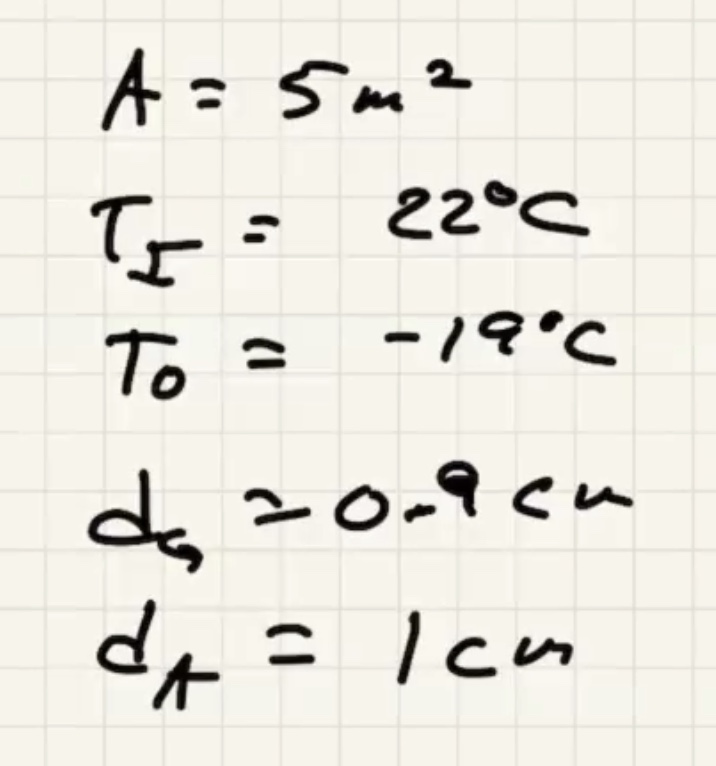 A = 5 m²
T_I = 22°C
T_O = -19°C
d_G = 0.9 cm
d_A = 1 cm